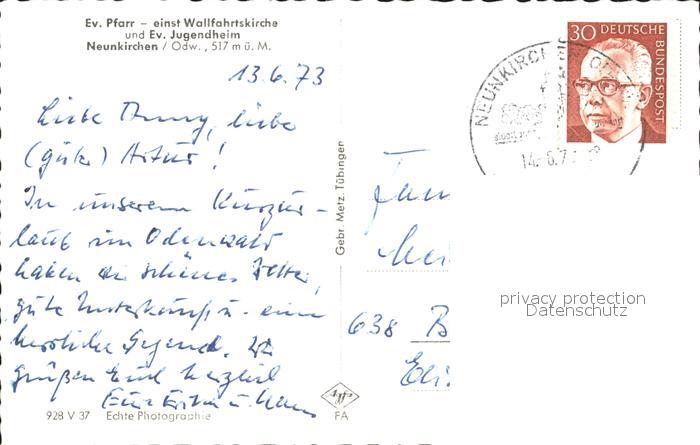 Ev. Pfarr – einst Wallfahrtskirche
und Ev. Jugendheim
Neunkirchen / Odw., 517 m ü. M.
13.6.73
Liebe Anny, liebe
(guter) Artur!
In unserem Kurzur-
laub im Odenwald
haben wir schönes Wetter,
gute Unterkunft u. eine
herrliche Gegend. Wir
grüßen Euch herzlich
Eure u. Hans
928 V 37 Echte Photographie
Gebr. Metz, Tübingen
Agfa
FA
30 DEUTSCHE
BUNDESPOST
NEUNKIRCHEN
14.-6.7
Fam
638 B
privacy protection
Datenschutz